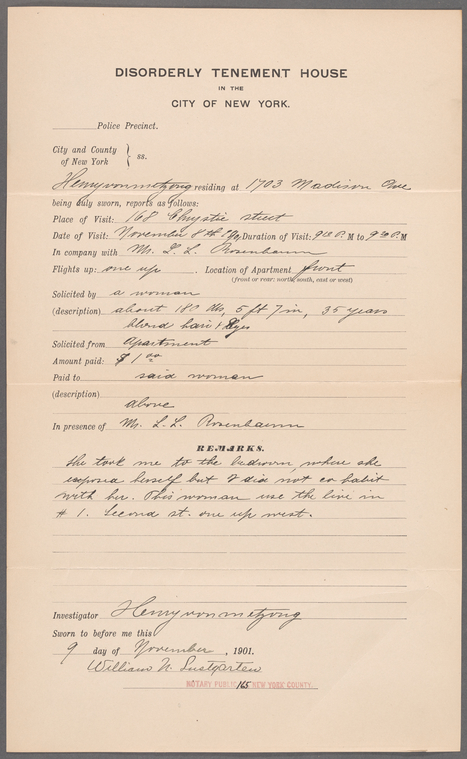 DISORDERLY TENEMENT HOUSE
IN THE
CITY OF NEW YORK.
Police Precinct.
City and County
of New York } ss.
Henry von metzong residing at 1703 Madison Ave
being duly sworn, reports as follows:
Place of Visit: 168 Chrystie street
Date of Visit: November 8th Duration of Visit: P. M to 9 30 P. M
In company with Mr. L. L. Rosenbaum
Flights up: one up . Location of Apartment front
(front or rear: north, south, east or west)
Solicited by a woman
(description) about 180 lbs, 5 ft 7 in, 35 years
blond hair + Eyes
Solicited from Apartment
Amount paid: $ 1 00
Paid to said woman
(description)
above
In presence of Mr. L. L. Rosenbaum
REMARKS.
She took me to the bedroom where she
exposed herself but I did not co habit
with her. This woman use the live in
# 1. Second st. one up west.
Investigator Henry von metzong
Sworn to before me this
9 day of November , 1901.
William N. Lustgarten
NOTARY PUBLIC 165 NEW YORK COUNTY.